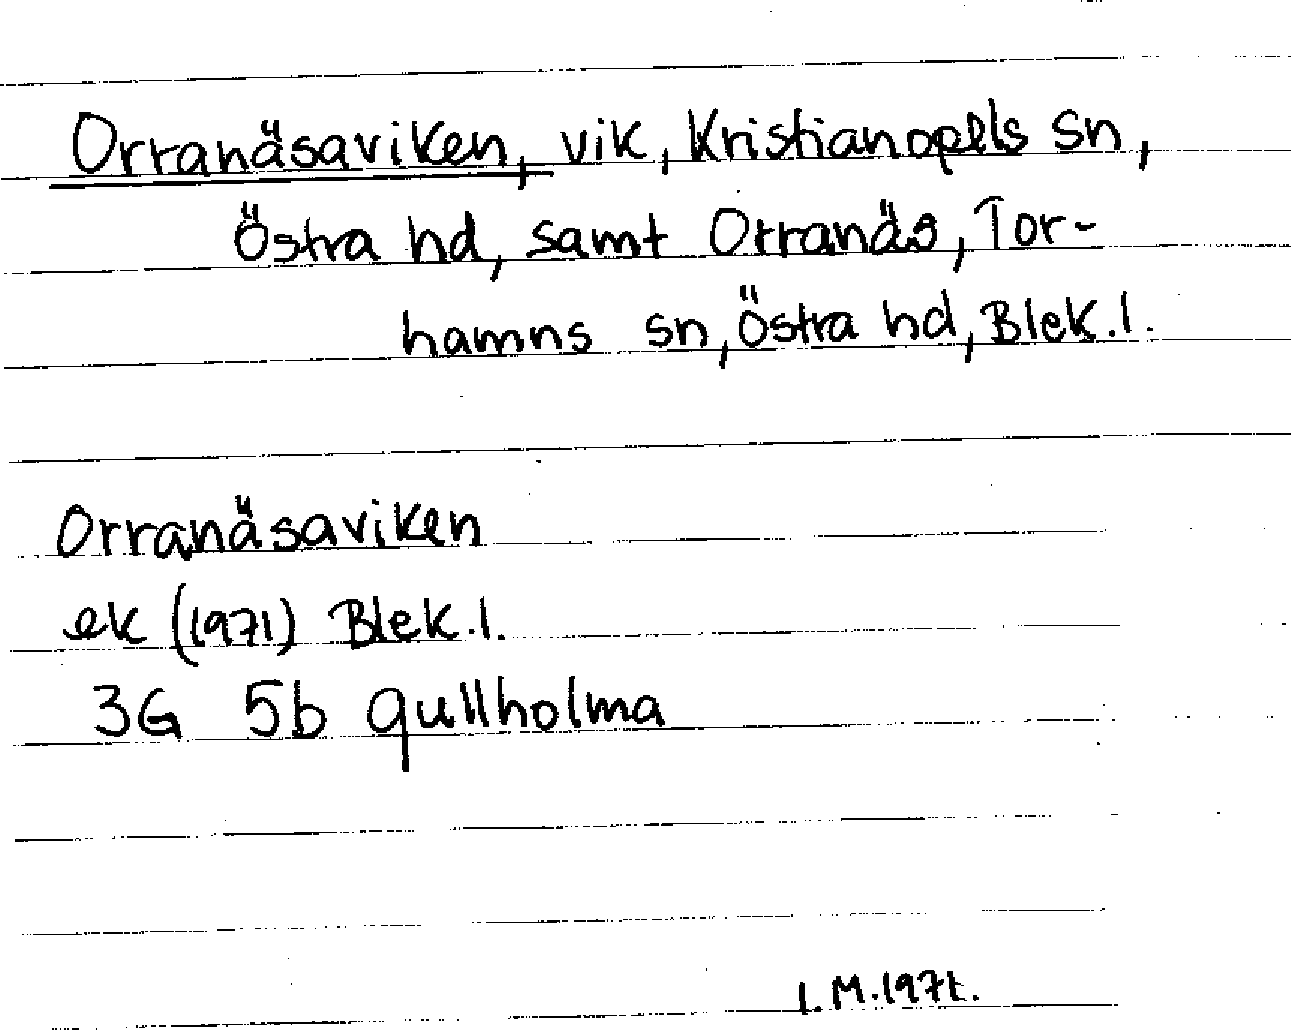 Orranäsaviken, vik, Kristianopels sn,
Östra hd, samt Orranäs, Tor-
hamns sn, Östra hd, Blek.l.
Orranäsaviken
ek (1971) Blek.l.
3G 5b gullholma
I.M.1971.